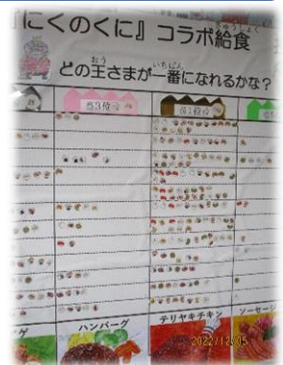 にくのくに』コラボ給食
きゅうしょく
どの王さまが一番になれるかな?
おう
いちばん
3位
1位
ハンバーグ
テリヤキチキン
ソーセージ
2022/12/05